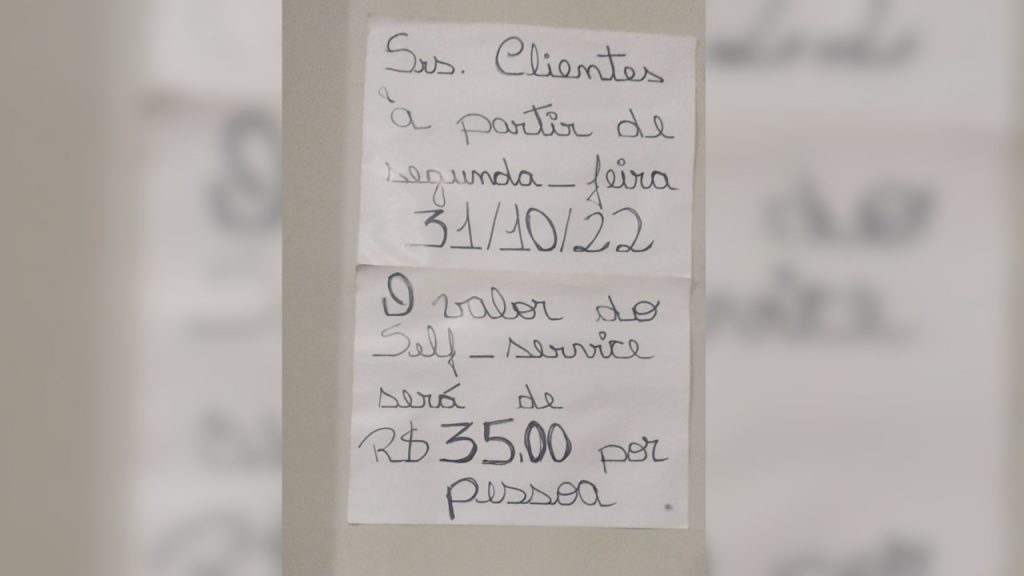 Srs. Clientes
à partir de
segunda-feira
31/10/22
O valor do
Self-service
será de
R$ 35,00 por
pessoa